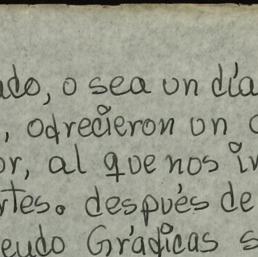 ado, o sea un día
, odrecieron un
or, al que nos in
rtes. después de
eudo Grádicas s